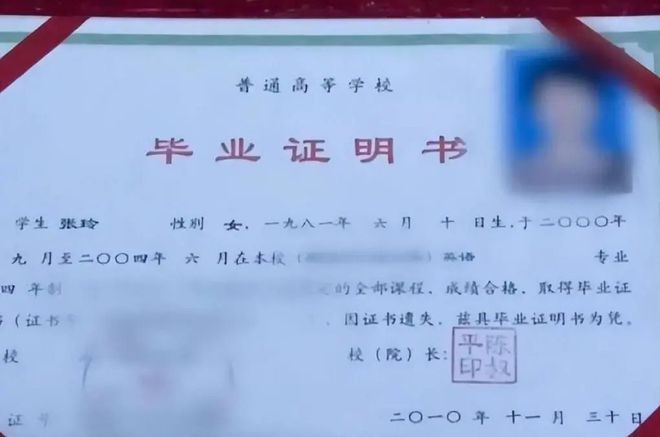 普通高等学校
毕业证明书
学生 张玲 性别 女, 一九八一年 六 月 十 日生, 于二〇〇〇年
九 月至二〇〇四年 六 月在本校 ( ) 英语 专业
四 年制 的全部课程、成绩合格, 取得毕业证
书 (证书 、因证书遗失, 兹具毕业证明书为凭。
校 校 (院) 长: 陈叔平印
证 书 二〇一〇 年 十一 月 三十 日